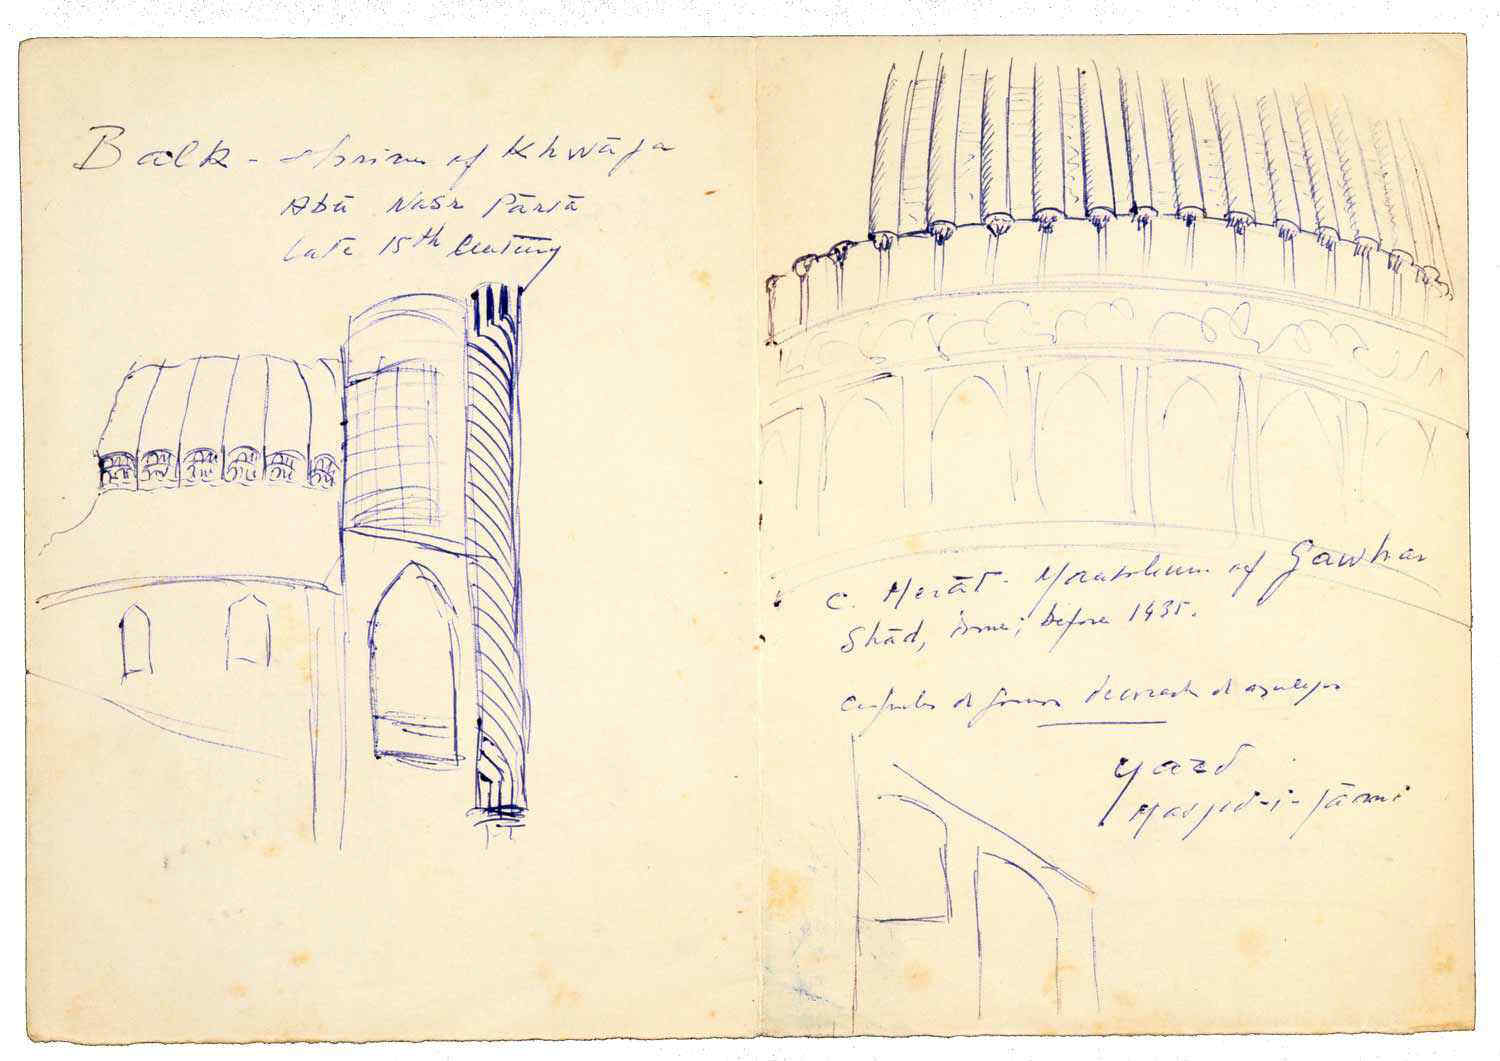 Balk - shrine of Khwāja
Abū Nasr Pārsā
Late 15th Century
C. Herāt. Mausoleum of Gawhar
Shād, dome; before 1435.
de azulejos
Yazd
Masjid-i-Jāmi